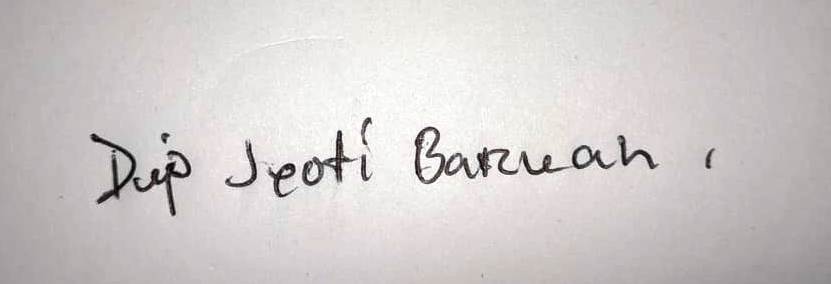 Dip Jeoti Baruah ,